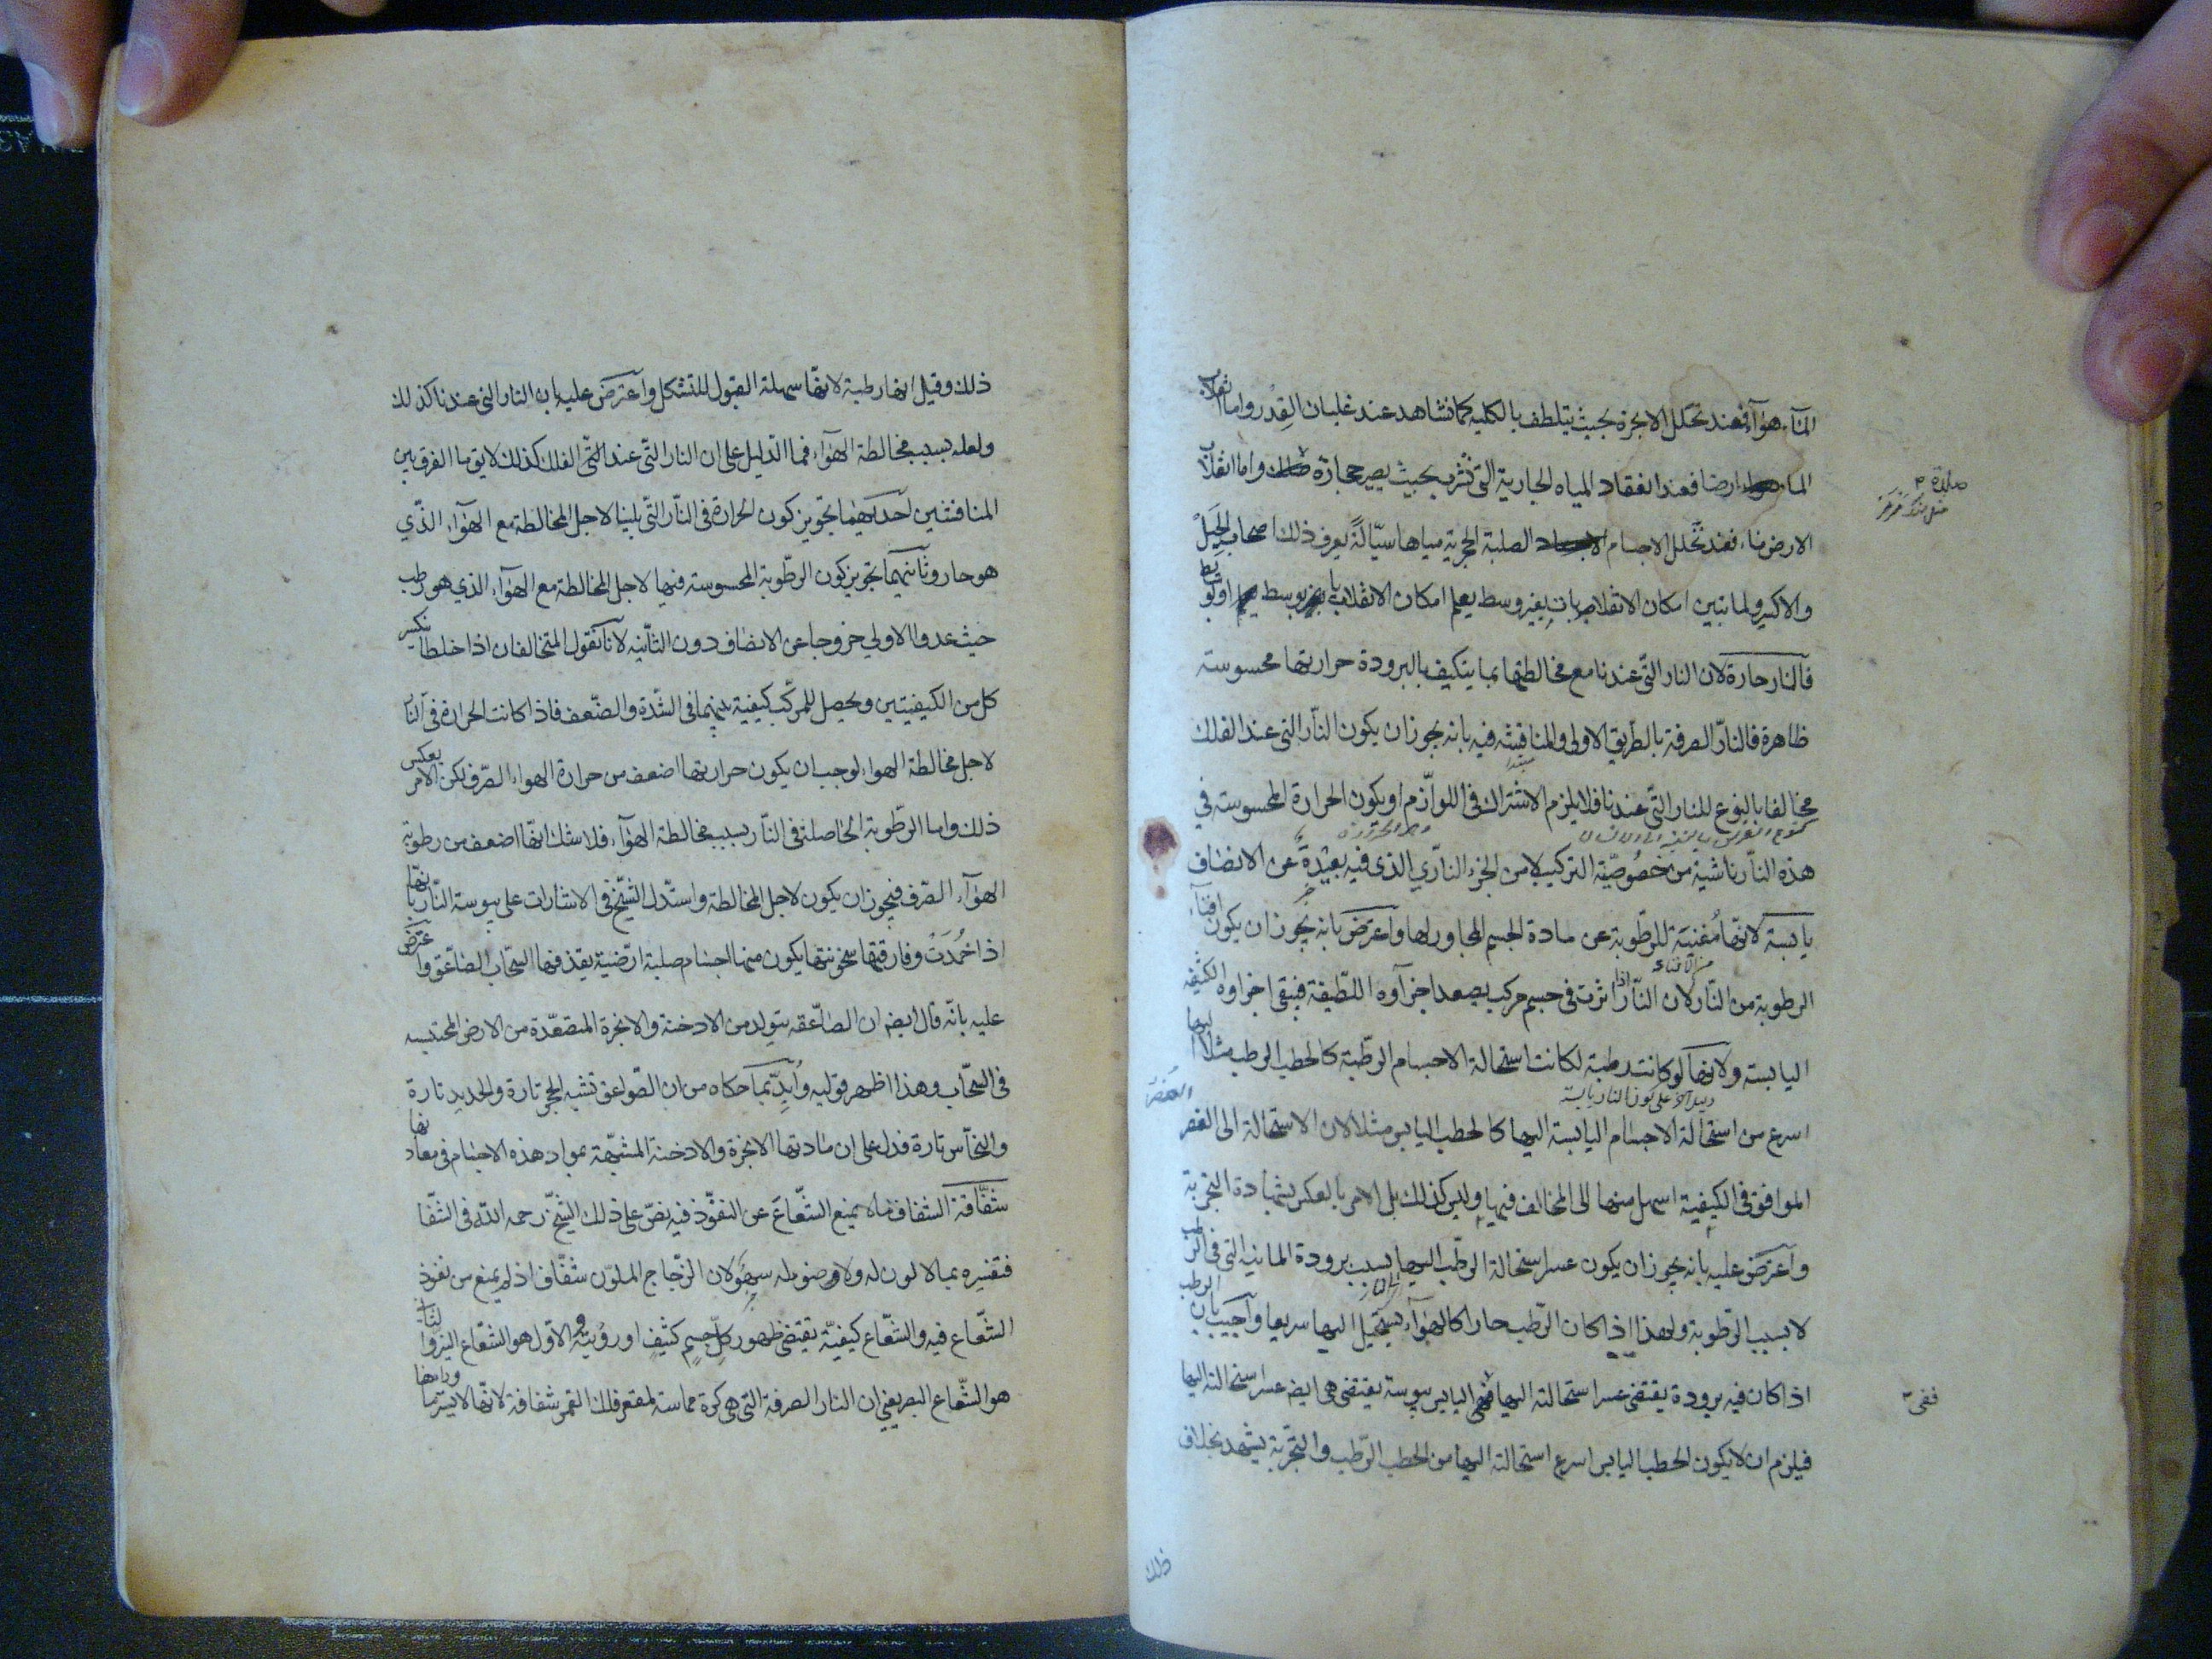 المآء هوآء فعند تحلل الابخرة بحيث يتلطف بالكليه كما نشاهد عند غليان القدر واما انقلاب
الماء ارضا فعند انعقاد المياه الجارية التي تشرب بحيث يصير حجارة واما انقلاب
صلدة
الارض ماء فعند تحلل الاجسام الصلبة الحجرية مياها سيّالةً يعرف ذلك اصحاب الحيل
والاكسير ولما تبين امكان الانقلاب بغير وسط يعلم امكان الانقلاب بوسط او بوسائط
فالنار حارة لان النار التي عندنا مع مخالطتها بما يتكيف بالبرودة حرارتها محسوسته
ظاهرة فالنار الصرفة بالطريق الاولى والمناقشه فيه بانه يجوز ان يكون النار التي عند الفلك
مبتدا
مخالفا بالنوع للنار التي عندنا فلا يلزم الاشتراك في اللوازم او يكون الحرارة المحسوسته في
هذه النار ناشية من خصوصيّة التركيب لا من الجزء الناري الذي فيه بعيدة عن الانصاف
يابسة لانها مُفنية للرطوبة عن مادة الجسم المجاور لها واعترض بانه يجوز ان يكون افنآء
من الافناء
الرطوبة من النار لان النار اذا اثرت في جسم مركب يصعد اجزآوه اللطيفة فيبقى اجزاوه الكثيفه
اليابسته ولانها لو كانت رطبة لكانت استحالة الاجسام الرطبة كالحطب الرطب مثلا اليها
دليل آخر على كون النار يابسة
اسرع من استحالة الاجسام اليابسة اليها كالحطب اليابس مثلا لان الاستحالة الى العنصر
العنصر
الموافق في الكيفية اسهل منها الى المخالف فيها وليس كذلك بل الامر بالعكس بشهادة التجربة
واعترض عليه بانه يجوز ان يكون عسر استحالة الرطب اليها بسبب برودة المائيه التي في الرطب
الى النار
لا بسبب الرطوبة ولهذا اذا كان الرطب حارا كالهوآء يستحيل اليها سريعا واجيب بان الرطب
اذا كان فيه برودة يقتضى عسر استحالته اليها ففي اليابس يبوسة يقتضى هي ايضه عسر استحالته اليها
ففي
فيلزم ان لا يكون الحطب اليابس اسرع استحالته اليها من الحطب الرطب والتجربة يشهد بخلاف
ذلك
ذلك وقيل انها رطبة لانها سهلة القبول للتشكل واعترض عليه بان النار التي عندنا كذلك
ولعله بسبب مخالطة الهوآء فما الدليل على ان النار التي عند الفلك كذلك لا يق ما الفرق بين
المناقشتين احديهما تجويز كون الحرارة في النار التي يلينا لاجل المخالطة مع الهوآء الذي
هو حار وثانيهما تجويز كون الرطوبة المحسوسته فيها لاجل المخالطة مع الهوآء الذي هو رطب
حيث عدوا الاولى خروجا عن الانصاف دون الثانيه لانا نقول المتخالفان اذا خلطا ينكسر
كل من الكيفيتين ويحصل للمركب كيفية بينهما في الشدة والضعف فاذا كانت الحرارة في النار
لاجل مخالطة الهواء لوجب ان يكون حرارتها اضعف من حرارة الهواء الصرف لكن الامر بعكس
ذلك واما الرطوبة الحاصلة في النار بسبب مخالطة الهوآء فلا شك انها اضعف من رطوبة
الهوآء الصرف فيجوز ان يكون لاجل المخالطة واستدل الشيخ في الاشارات على يبوسة النار بانها
اذا خُمدَتْ وفارقتها سخونتها يكون منها اجسام صلبة ارضية يقذفها السحاب الصاعق واعترض
عليه بانه قال ايضه ان الصاعقه يتولد من الادخنة والابخرة المتصعّدة من الارض المحتبسه
في السحاب وهذا اظهر قوليه وأيد بما حكاه من ان الصواعق تشبه الحجر تارة والحديد تارة
والنحاس تارة فدل على ان مادتها الابخرة والادخنة المشبهة بمواد هذه الاجسام في معادنها
شفّافة الشفاف ما لا يمنع الشعاع عن النفوذ فيه نص على ذلك الشيخ رحمه الله في الشفا
فتفسيره بما لا لون له ولا ضوء له سهو لان الزجاج الملون شفاف اذ لم يمنع من نفوذ
الشعاع فيه والشعاع كيفية تقتضى ظهور كل جسم كثيف او رؤيته والاول هو الشعاع النير والثاني
هو الشعاع البصر يعني ان النار الصرفة التي هي كرة مماسة لمقعر فلك القمر شفافة لانها لا يستر ما وراءها